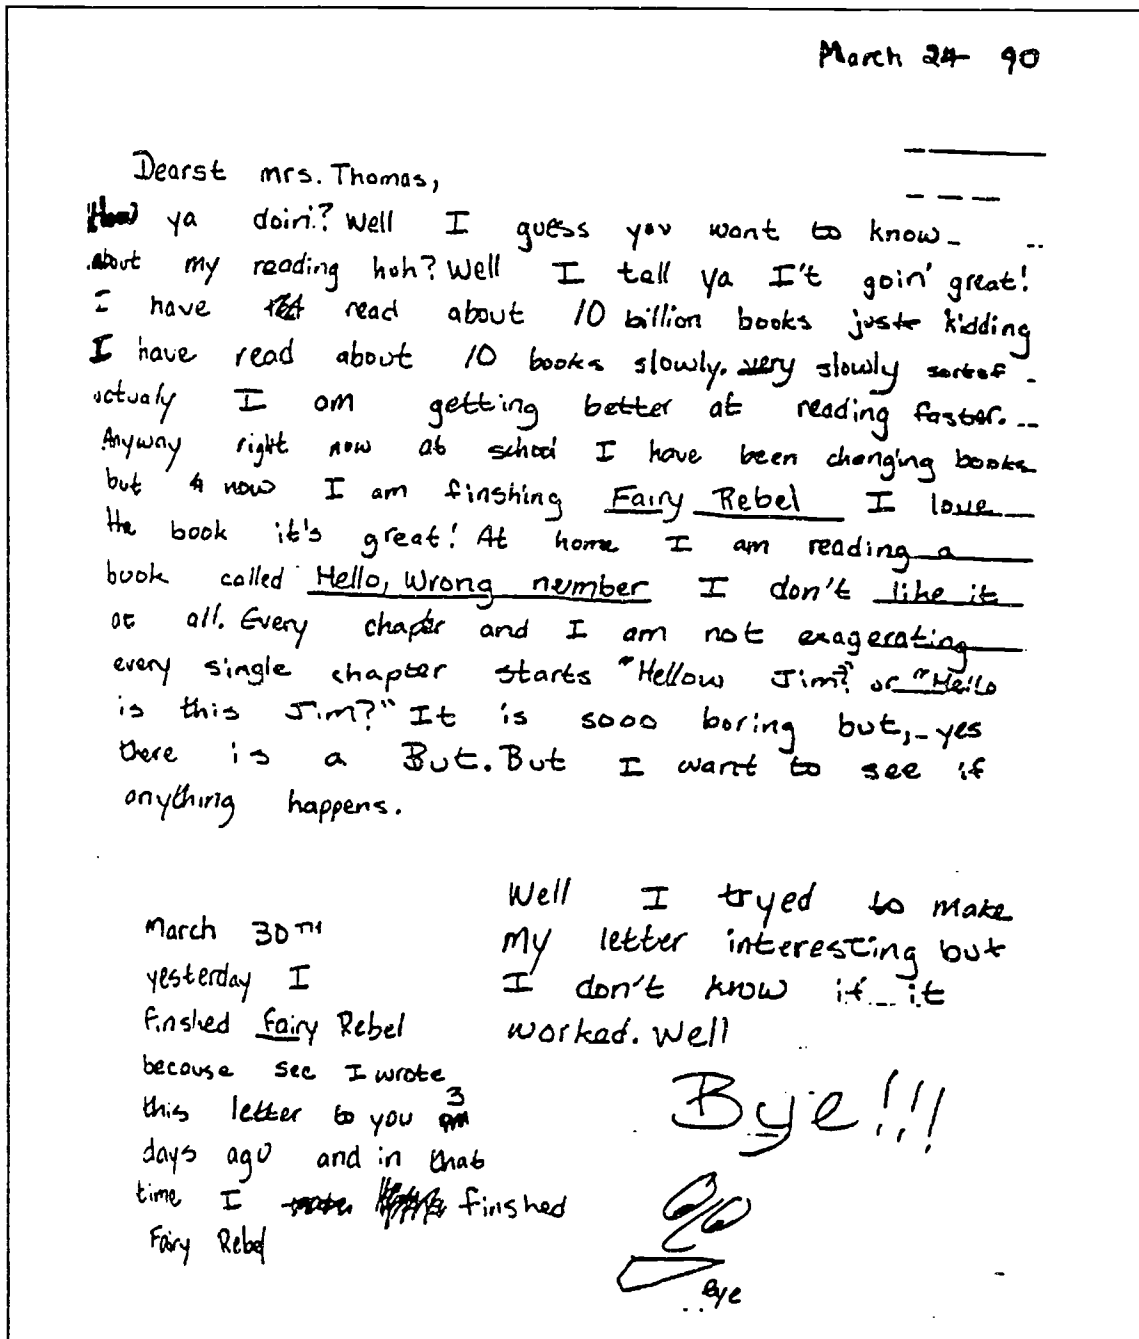 March 24 90
Dearst mrs. Thomas,
How ya doin'? Well I guess you want to know
about my reading huh? Well I tell ya I't goin' great!
I have read about 10 billion books just kidding
I have read about 10 books slowly. very slowly sortof
actualy I am getting better at reading faster.
Anyway right now at school I have been changing books
but now I am finshing Fairy Rebel I love
the book it's great! At home I am reading a
book called Hello, Wrong number I don't like it
at all. Every chapter and I am not exagerating
every single chapter starts "Hellow Jim?" or "Hello
is this Jim?" It is sooo boring but, yes
there is a But. But I want to see if
anything happens.
Well I tryed to make
my letter interesting but
I don't know if it
worked. Well
Bye!!!
Bye
March 30TH
yesterday I
finshed Fairy Rebel
because see I wrote
this letter to you 3
days ago and in that
time I finshed
Fairy Rebel